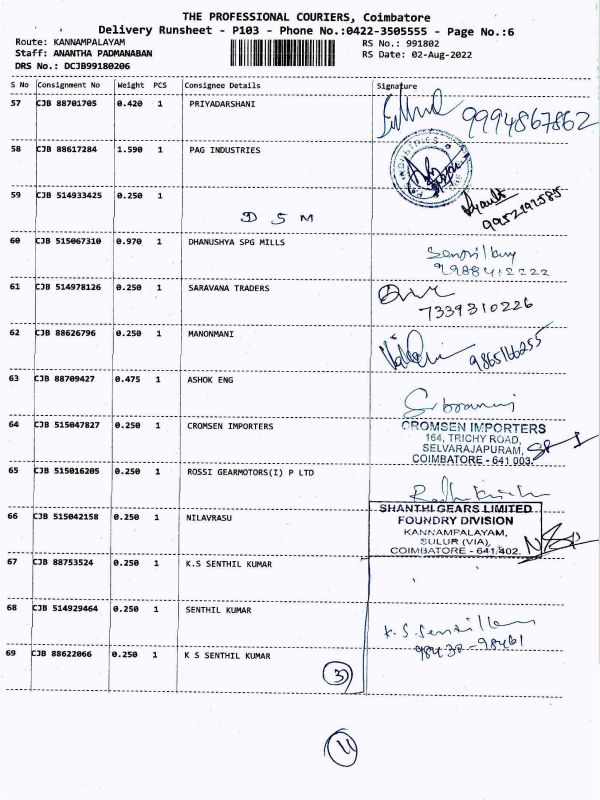 THE PROFESSIONAL COURIERS, Coimbatore
Delivery Runsheet - P103 - Phone No.:0422-3505555 - Page No.:6
Route: KANNAMPALAYAM RS No.: 991802
Staff: ANANTHA PADMANABAN RS Date: 02-Aug-2022
DRS No.: DCJB99180206
S No Consignment No Weight PCS Consignee Details Signature
57 CJB 88701705 0.420 1 PRIYADARSHANI
9994867862
58 CJB 88617284 1.590 1 PAG INDUSTRIES
INDUSTRIES
59 CJB 514933425 0.250 1
D S M
9952192585
60 CJB 515067310 0.970 1 DHANUSHYA SPG MILLS
9988412222
61 CJB 514978126 0.250 1 SARAVANA TRADERS
7339310226
62 CJB 88626796 0.250 1 MANONMANI
9865166255
63 CJB 88709427 0.475 1 ASHOK ENG
64 CJB 515047827 0.250 1 CROMSEN IMPORTERS
CROMSEN IMPORTERS
164, TRICHY ROAD,
SELVARAJAPURAM,
COIMBATORE - 641 003.
65 CJB 515016205 0.250 1 ROSSI GEARMOTORS(I) P LTD
66 CJB 515042158 0.250 1 NILAVRASU
SHANTHI GEARS LIMITED
FOUNDRY DIVISION
KANNAMPALAYAM,
SULUR (VIA),
COIMBATORE - 641 402.
67 CJB 88753524 0.250 1 K.S SENTHIL KUMAR
68 CJB 514929464 0.250 1 SENTHIL KUMAR
K. S. Senthil
98430 - 98461
69 CJB 88622066 0.250 1 K S SENTHIL KUMAR
3
11